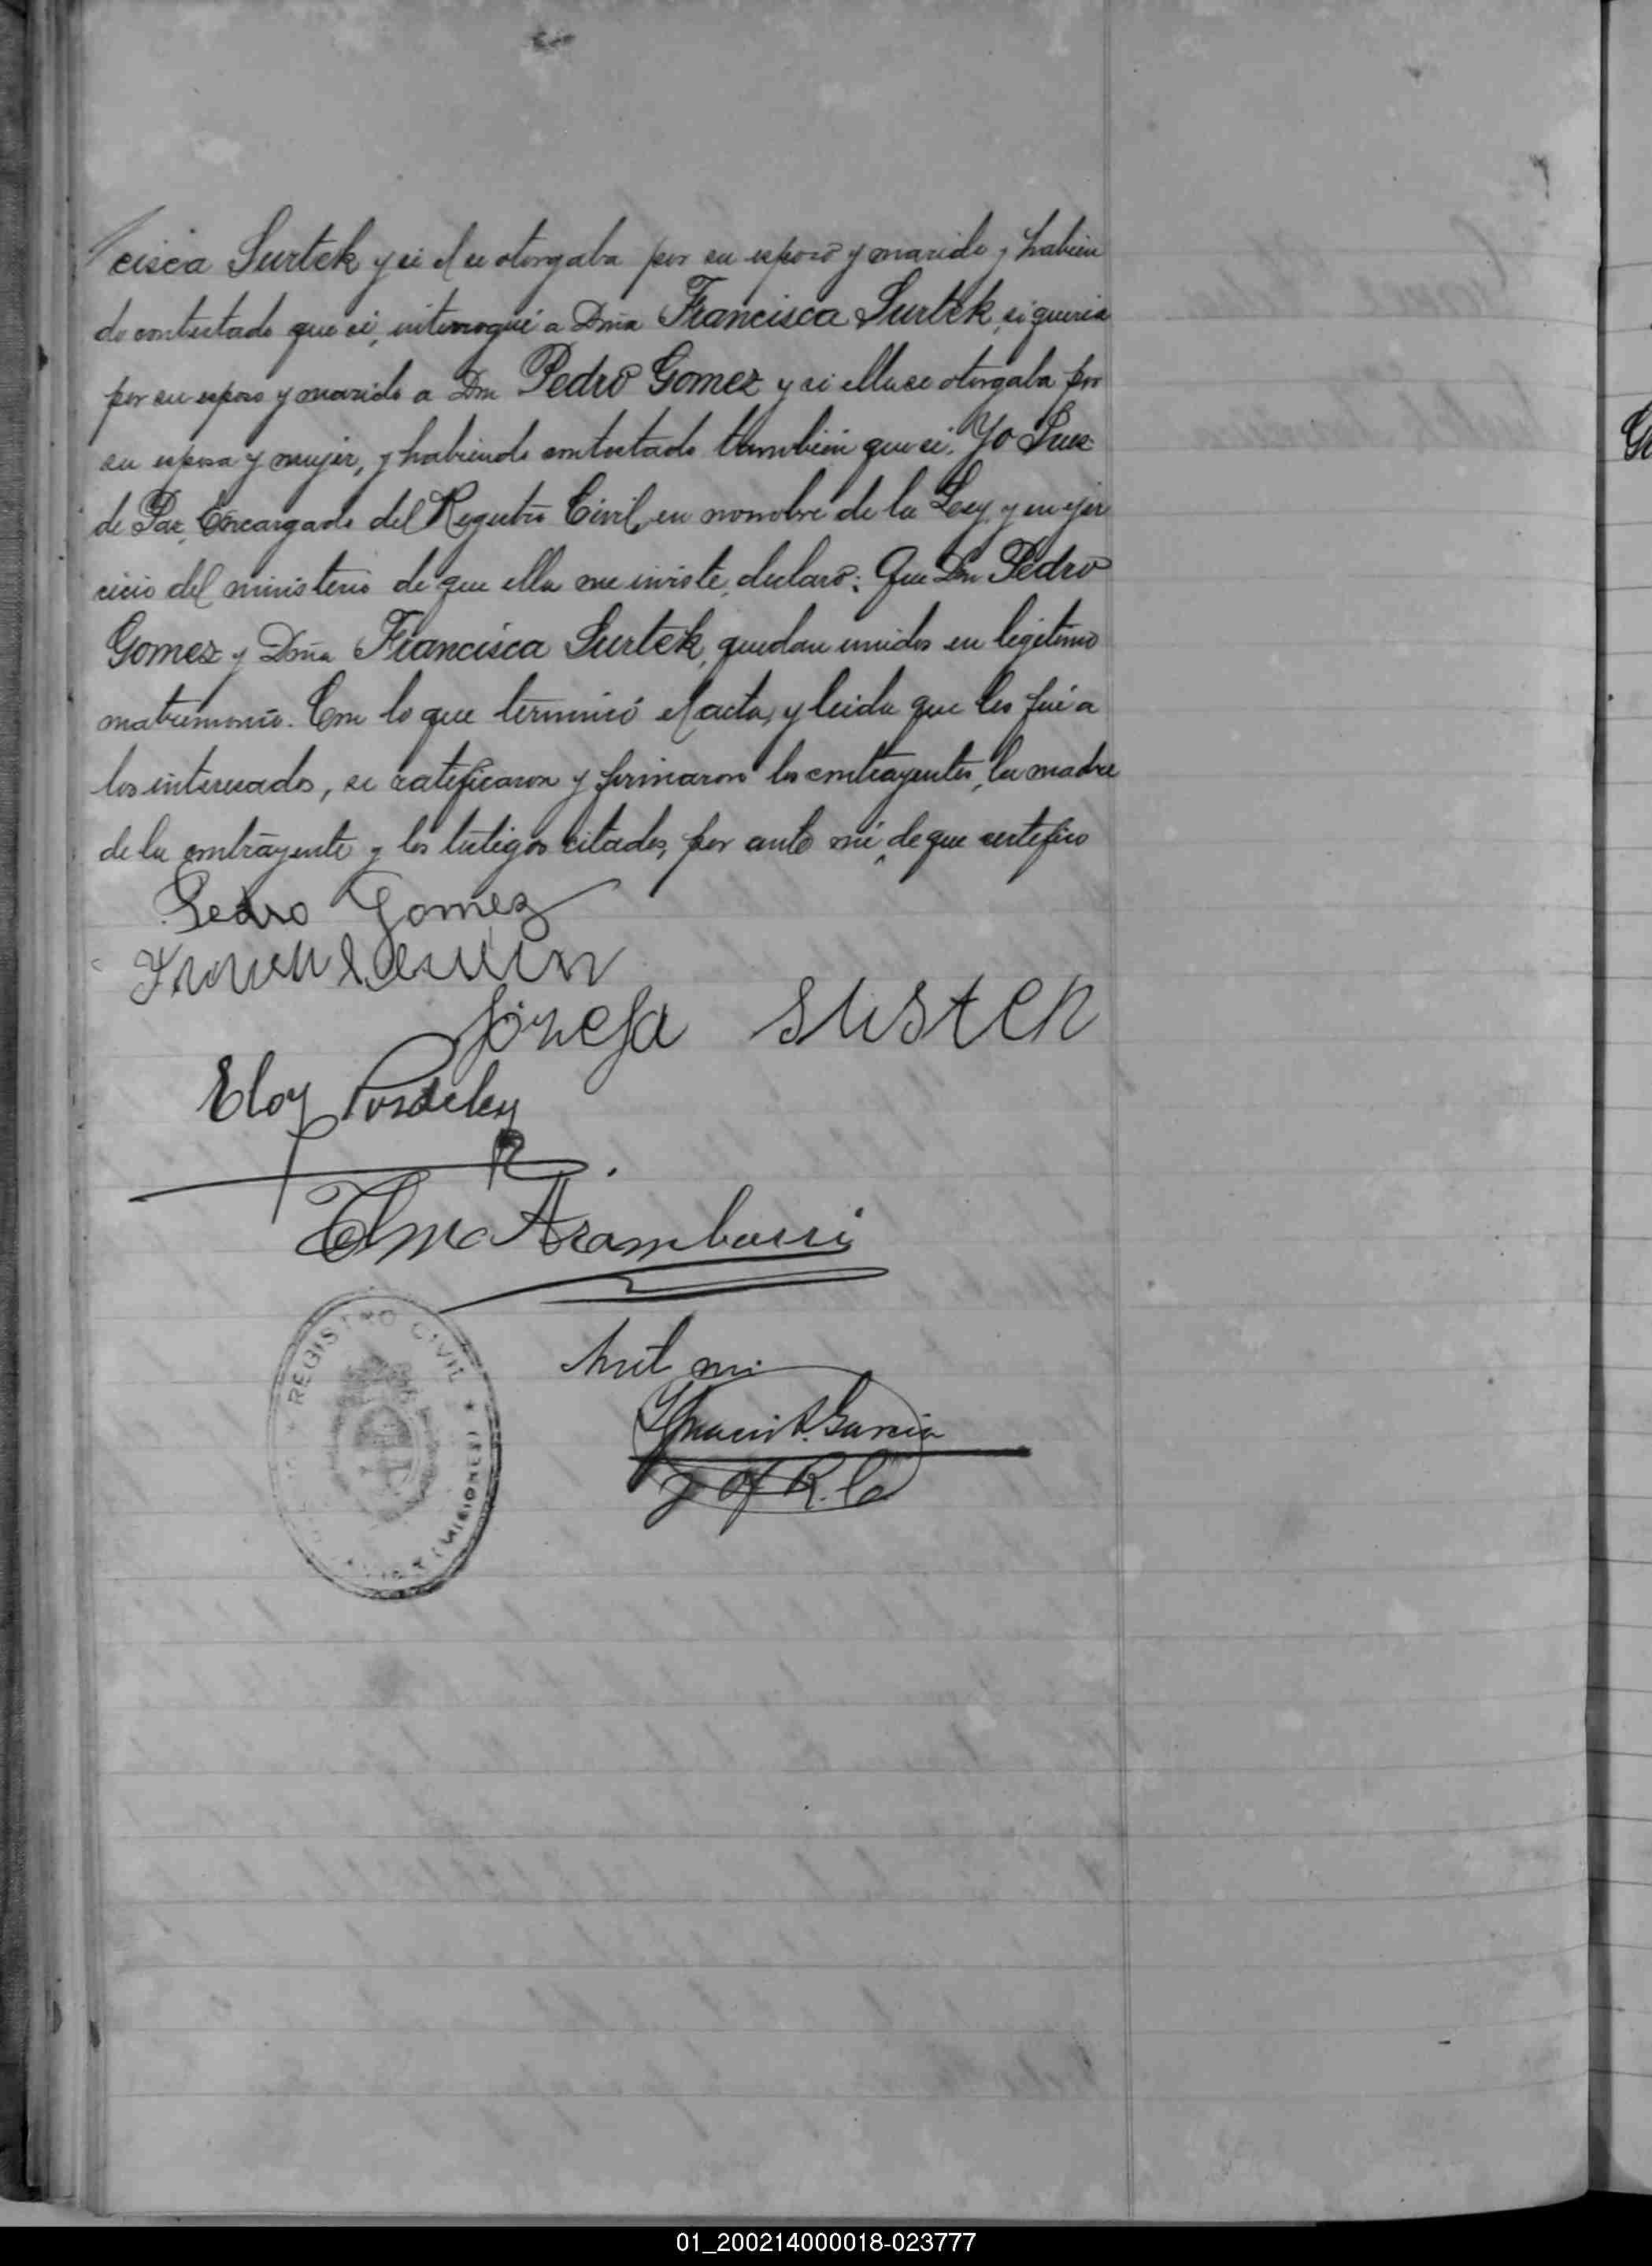 cisca Surtek y si él se otorgaba por su esposo y marido y habien
do contestado que si, interrogué a Dña Francisca Surtek, si queria
por su esposo y marido a Dn Pedro Gomez y si ella se otorgaba por
su esposa y mujer, y habiendo contestado también que si. Yo Juez
de Paz, Encargado del Registro Civil, en nombre de la Ley, y en ejer
cicio del ministerio de que ella me inviste, declaro: Que Dn Pedro
Gomez y Dña Francisca Surtek, quedan unidos en legitimo
matrimonio. Con lo que terminó el acta, y leida que les fué a
los interesados, se ratificaron y firmaron los contrayentes, la madre
de la contrayente y los testigos citados, por ante mi, de que certifico
Pedro Gomez
Józefa
Eloy
Telmo Aramburri
REGISTRO CIVIL
(MISIONES)
Ante mi
Ignacio A. Garcia
J. Of. R. C.
G
01_200214000018-023777